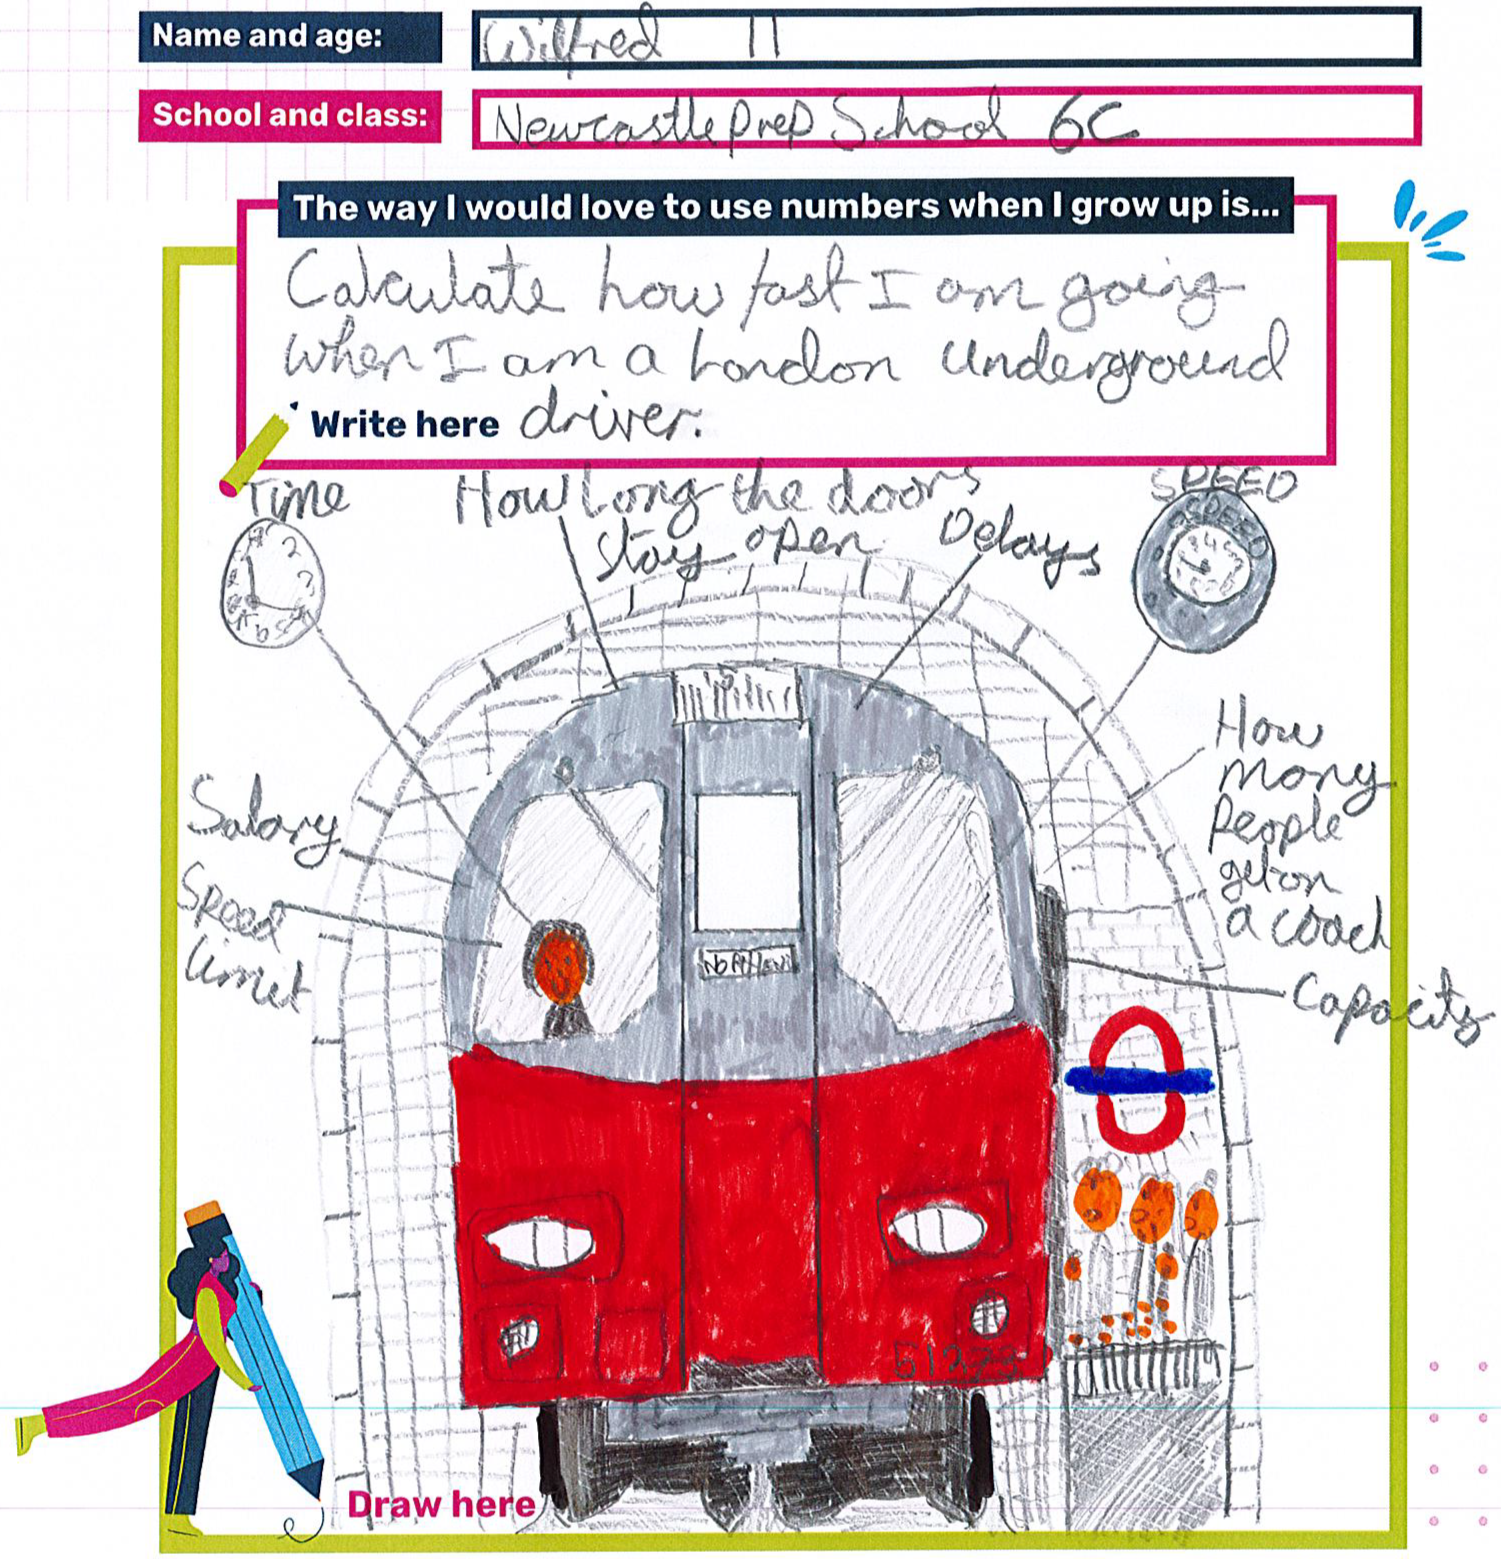 Name and age:
Wilfred 11
School and class:
Newcastle prep School 6C
The way I would love to use numbers when I grow up is...
Calculate how fast I am going
when I am a London Underground
Write here driver.
Time
How Long the doors
stay open
Delays
SPEED
SPEED
Salary
Speed
limit
How
many
People
get on
a coach
Capacity
51273
Draw here